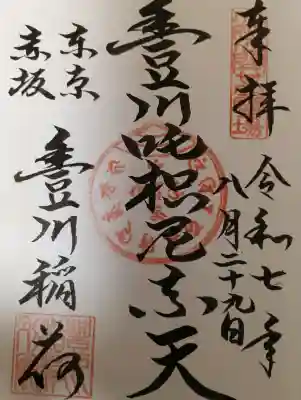 奉拝
令和七年
八月二十九日
豐川吒枳尼真天
东京
赤坂
豐川稲荷